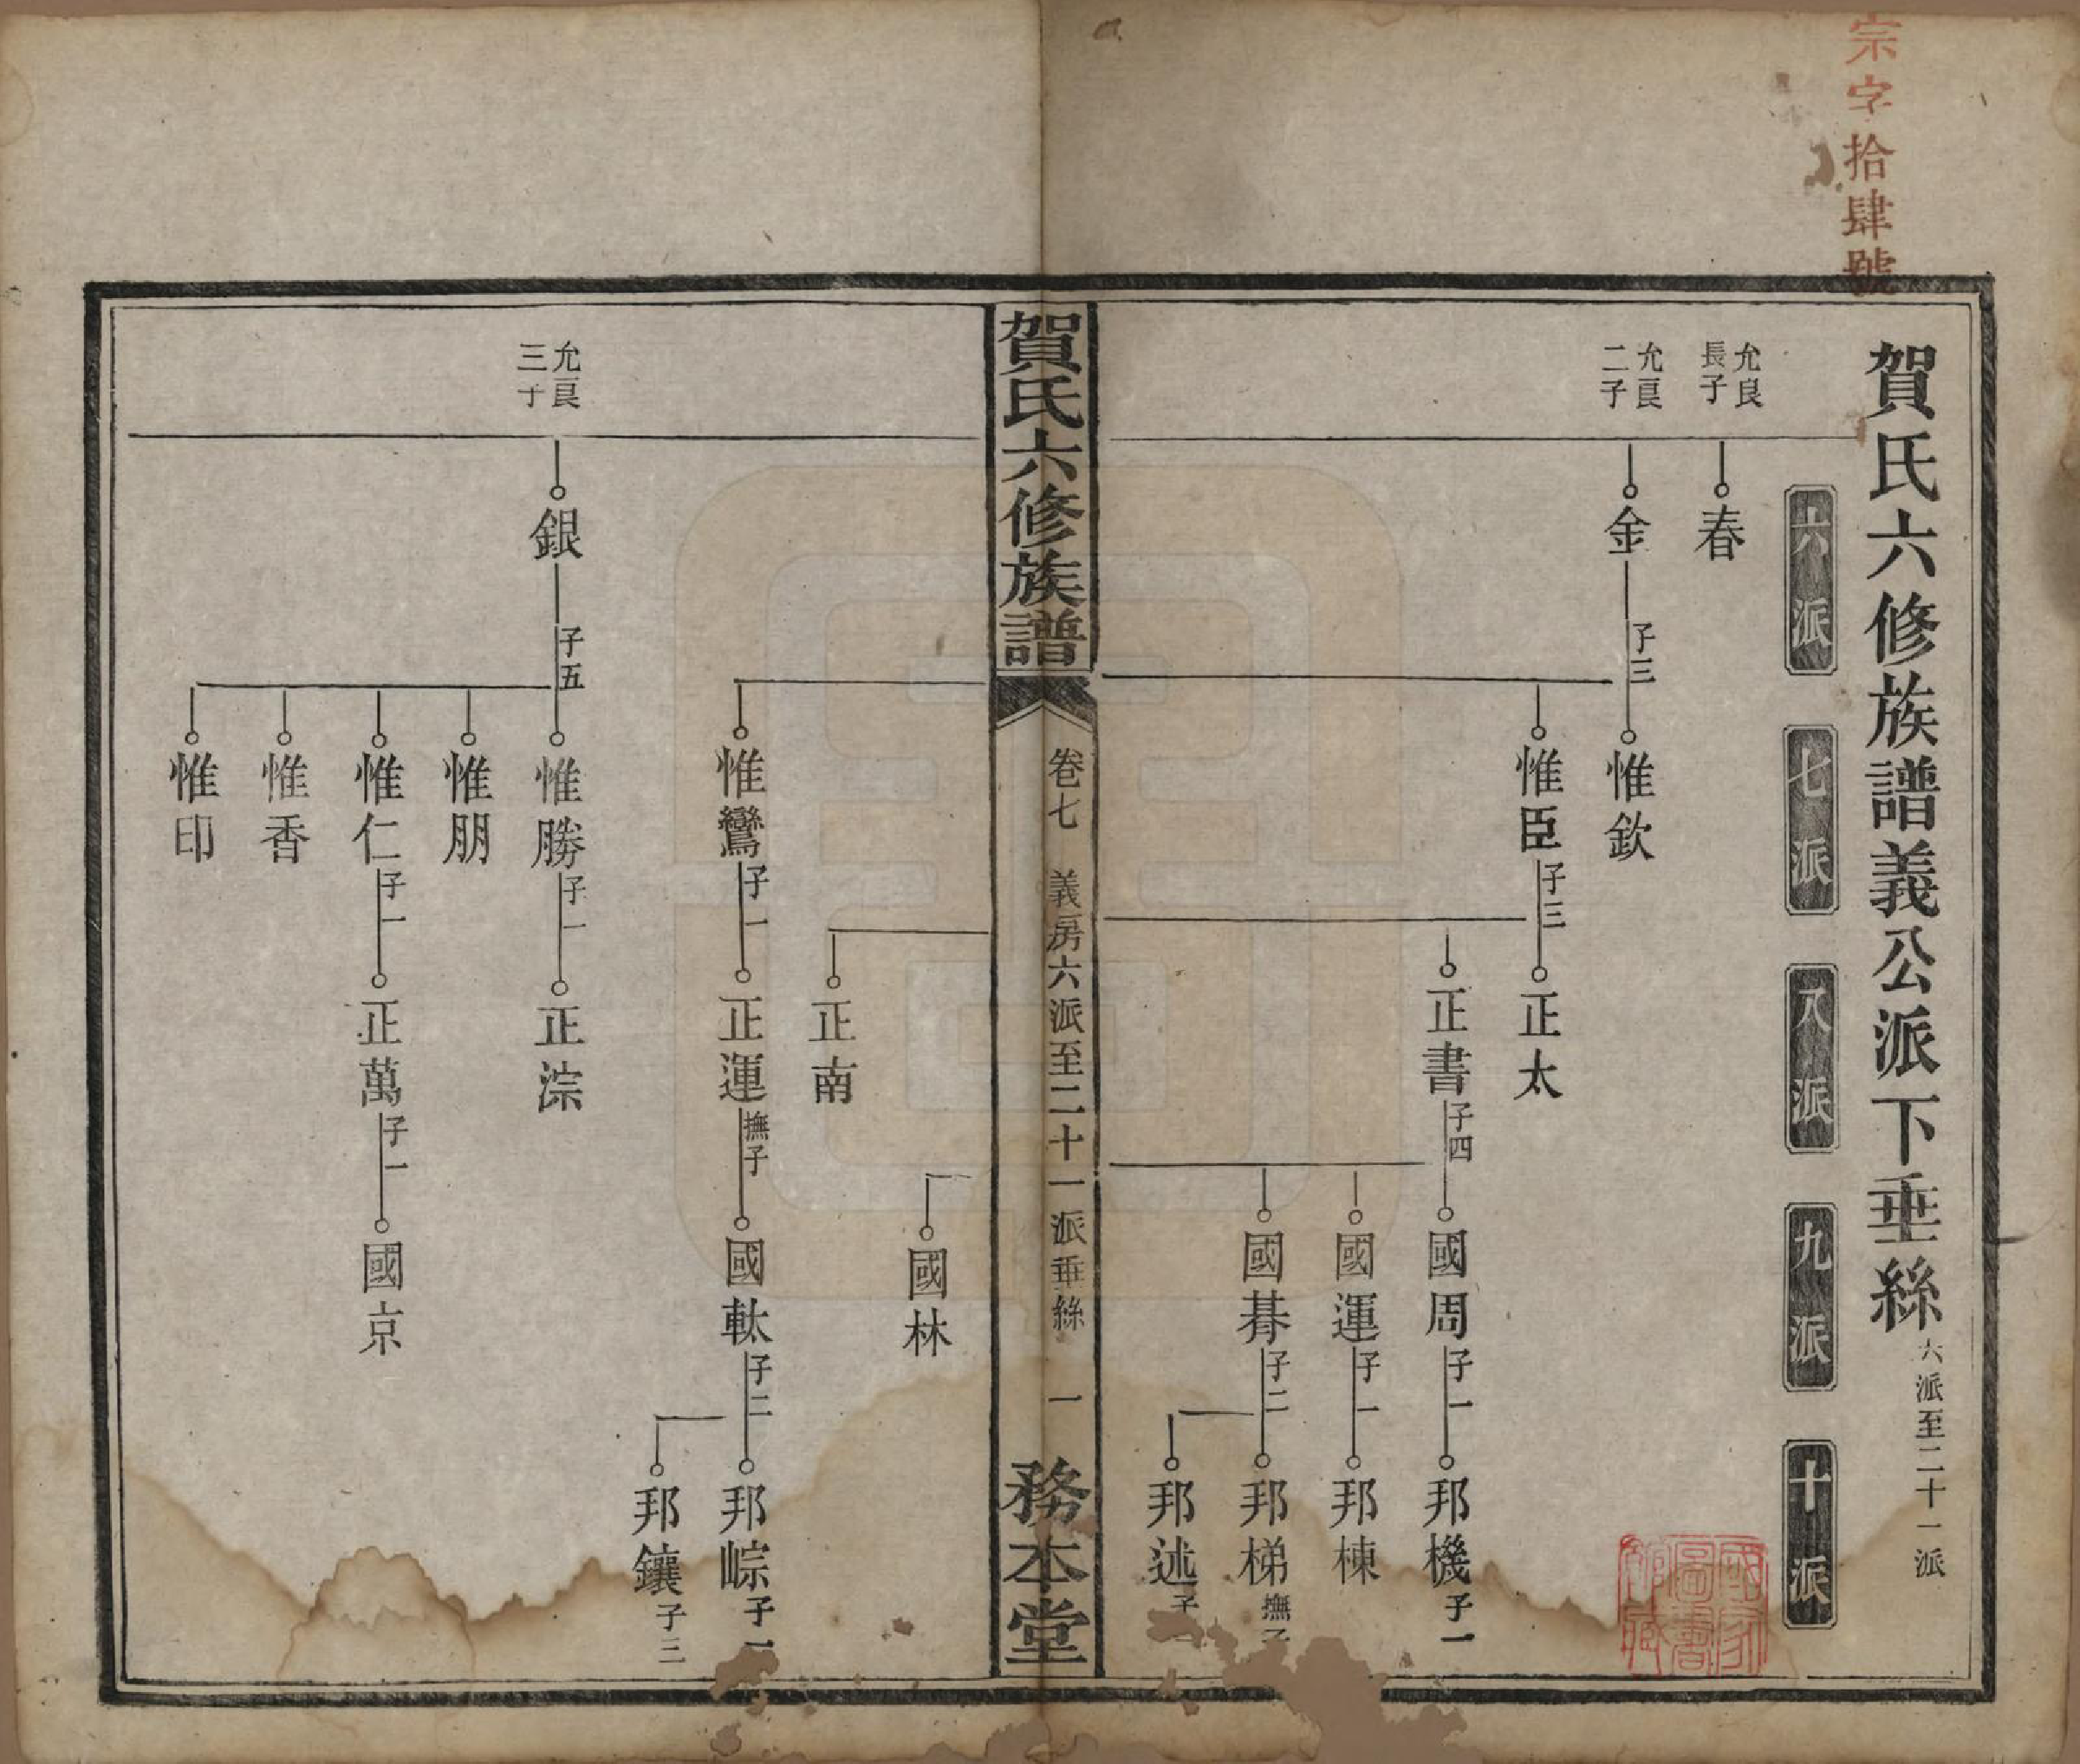 宗字拾肆號
賀氏六修族譜義公派下垂絲 六派至二十一派
六派
七派
八派
九派
十派
允良長子
春
允良二子
金 子三
惟欽
惟臣 子三
正太
正書 子四
國周 子一
邦機 子一
國運 子一
邦棟
國朞 子二
邦梯 撫子
邦述 子
國家圖書館藏
賀氏六修族譜
卷七 義房六派至二十一派垂絲 一
務本堂
國林
正南
惟鸞 子一
正運 撫子
國軑 子二
邦崈 子一
邦鑲 子三
允良三子
銀 子五
惟勝 子一
正淙
惟朋
惟仁 子一
正萬 子一
國京
惟香
惟印